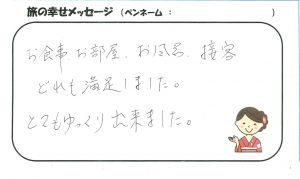 旅の幸せメッセージ（ペンネーム： ）
お食事、お部屋、お風呂、接客
どれも満足しました。
とてもゆっくり出来ました。